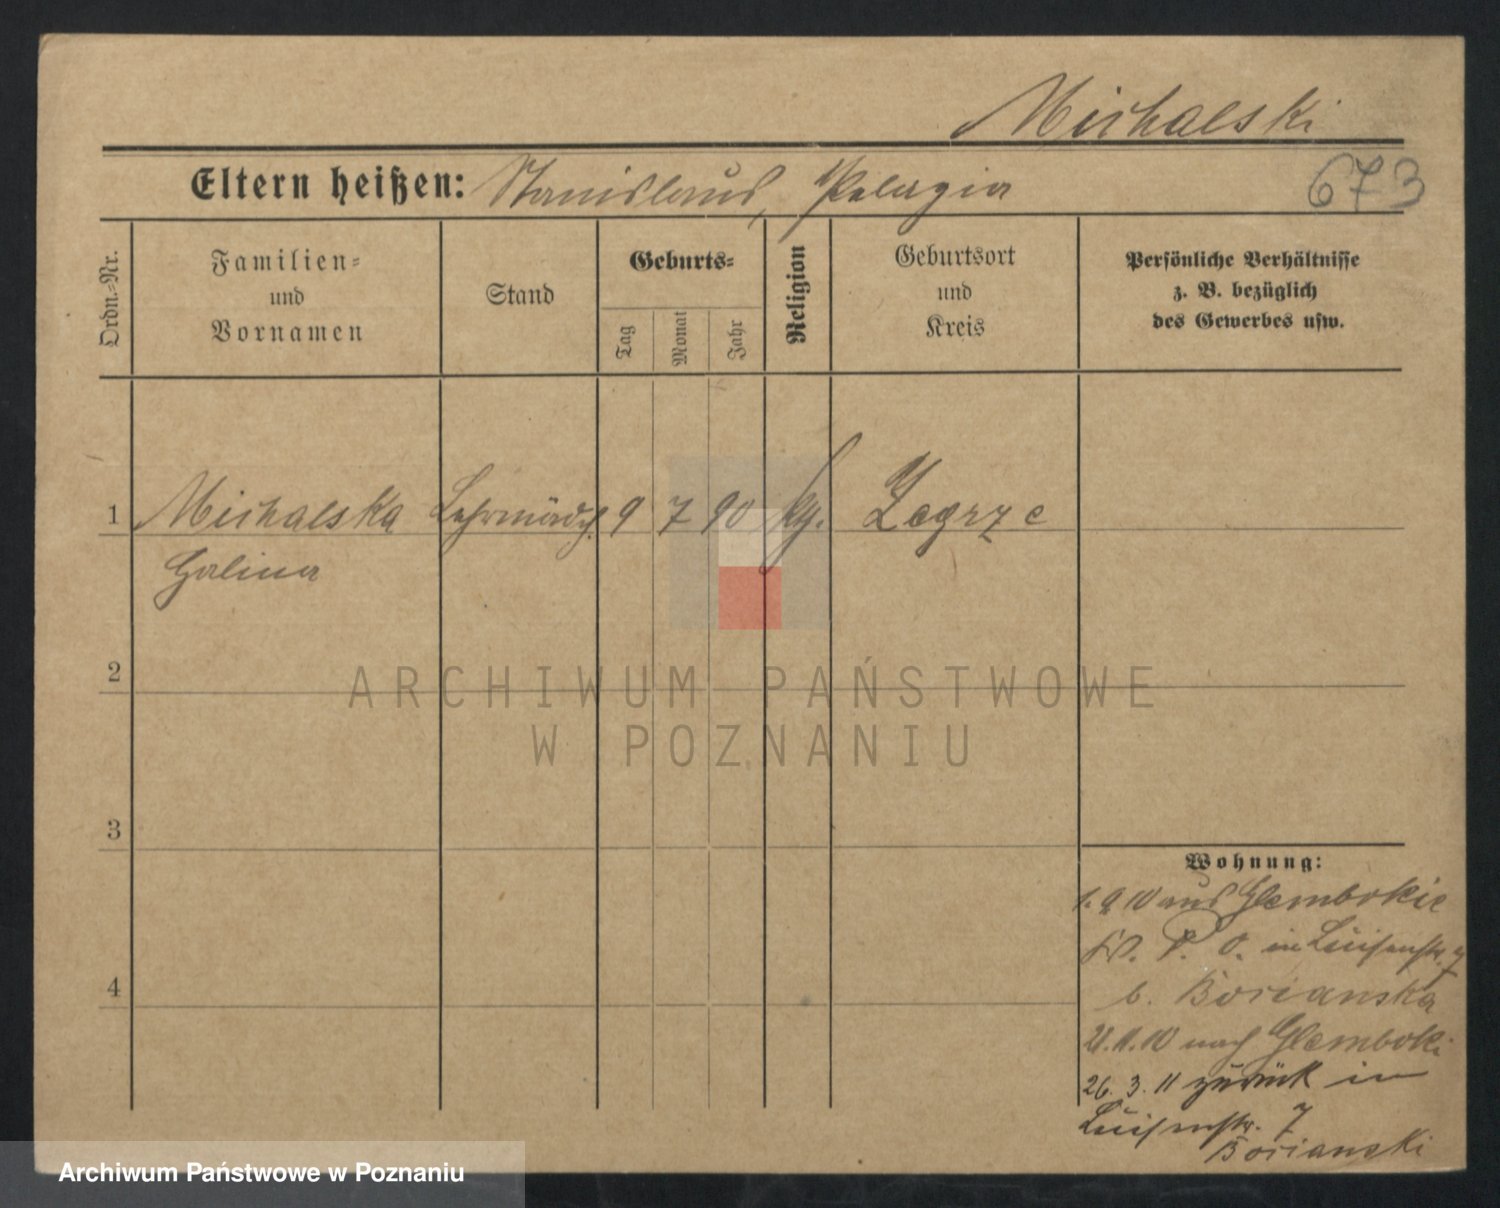 Michalski
Eltern heißen: Stanislaus, Pelagia
673
Ordn.-Nr.
Familien-
und
Vornamen
Stand
Geburts-
Tag
Monat
Jahr
Religion
Geburtsort
und
Kreis
Persönliche Verhältnisse
z. B. bezüglich
des Gewerbes usw.
1 Michalska Lehrmädch. 9 7 90 kth. Zegrze
Halina
2
ARCHIWUM PAŃSTWOWE
W POZNANIU
3
Wohnung:
1.9.10 aus Glembokie
Kr. P. O. in Luisenstr. 7
4
b. Borianska
21.11.10 nach Glemboki
26.3.11 zurück in
Luisenstr. 7
Borianski
Archiwum Państwowe w Poznaniu